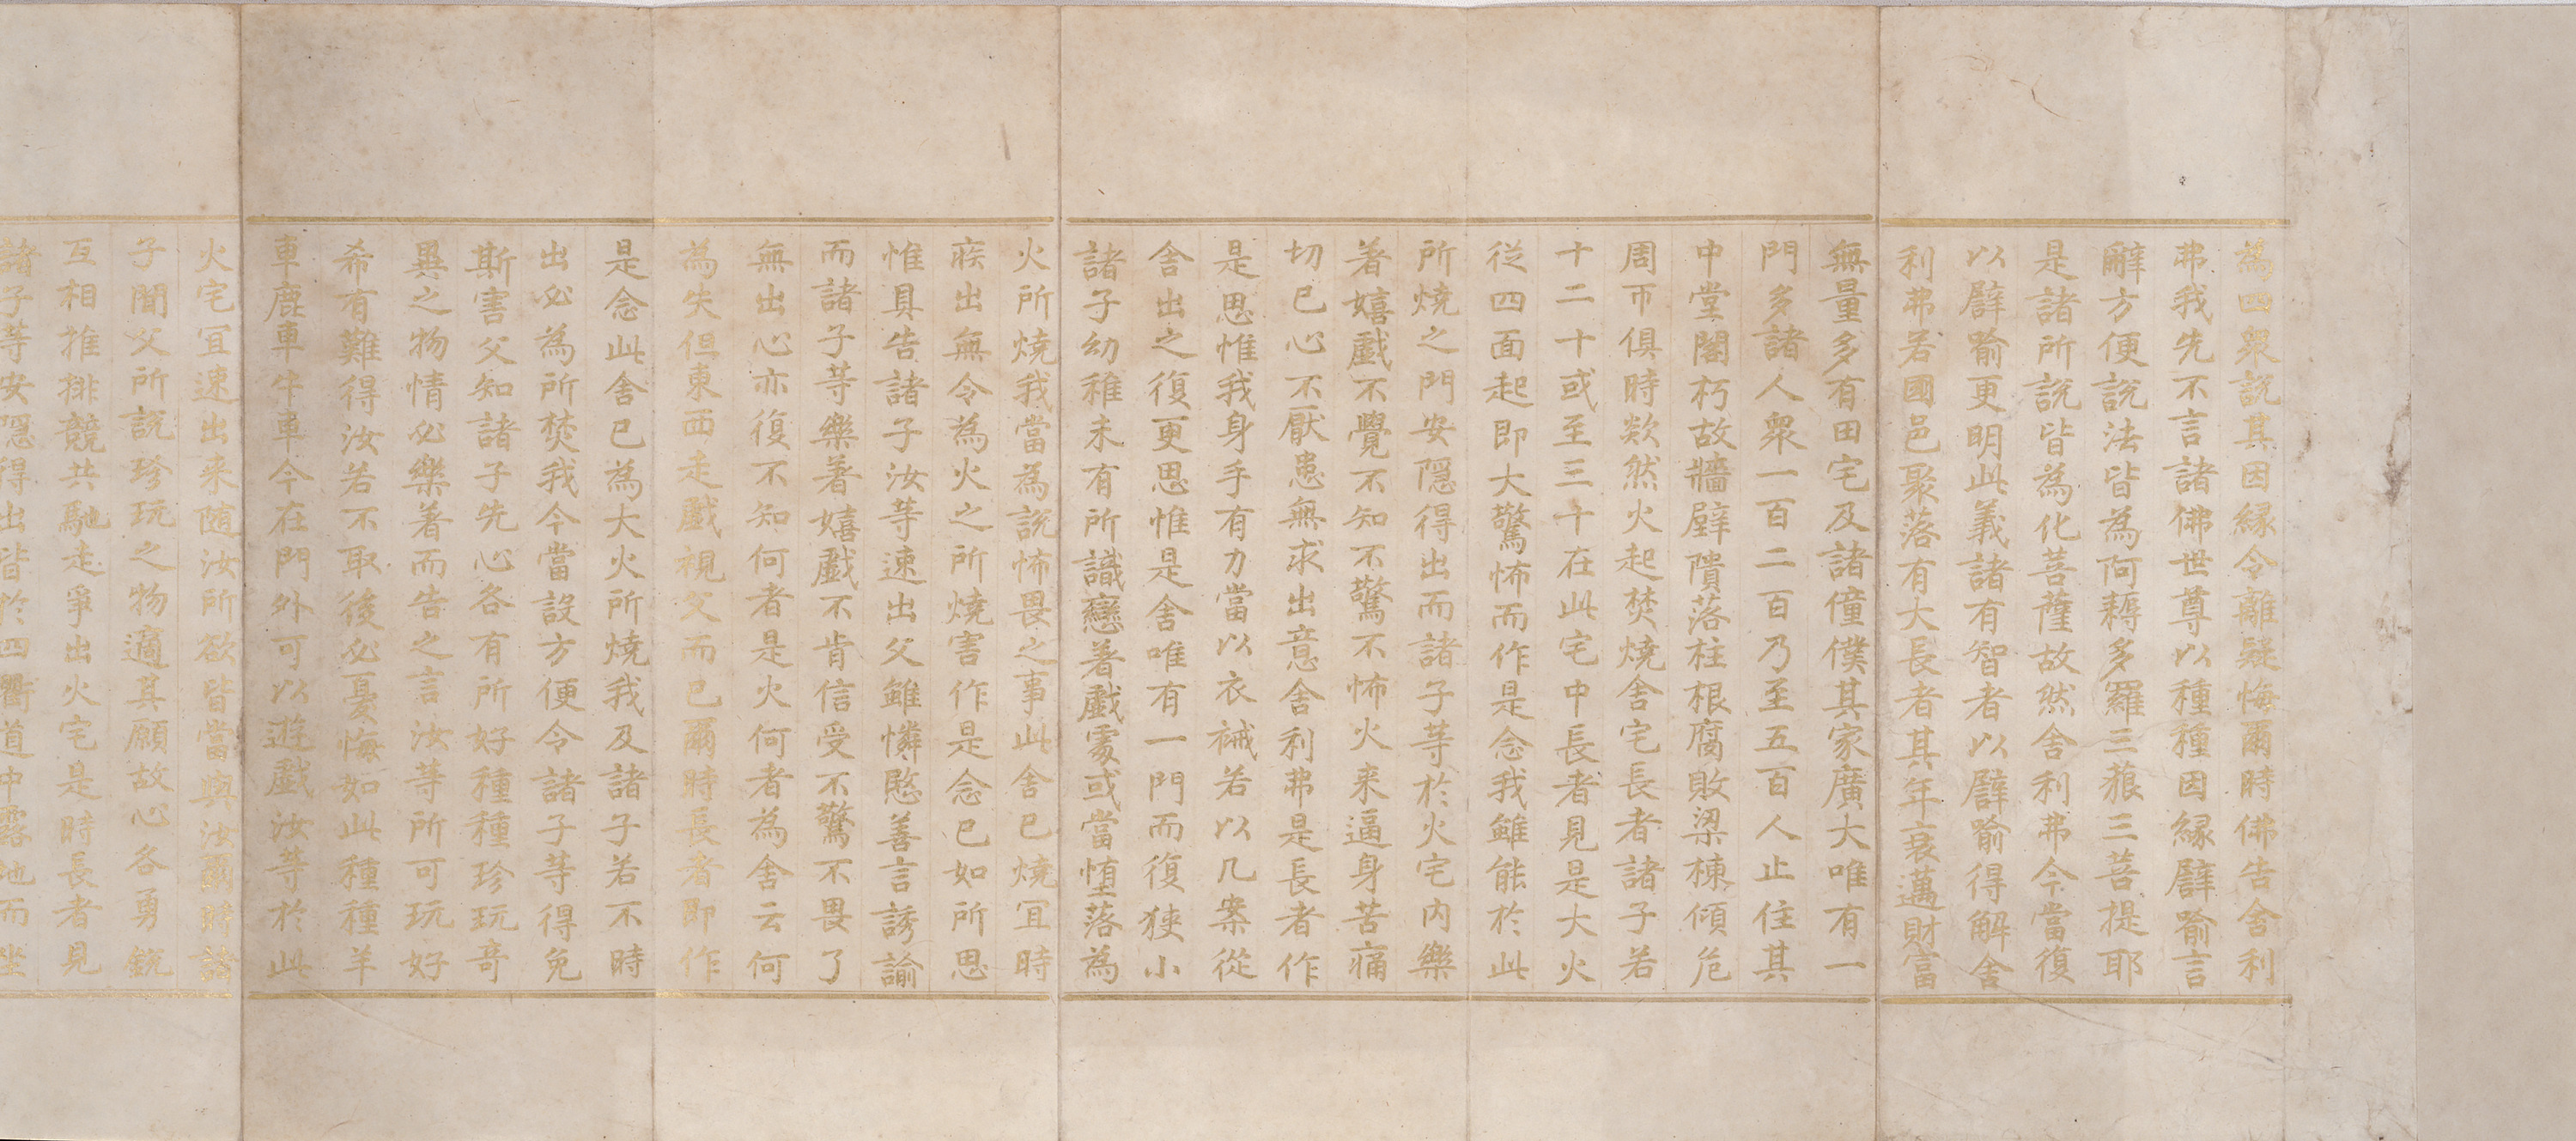 為四眾說其因緣令離疑悔爾時佛告舍利
弗我先不言諸佛世尊以種種因緣譬喻言
辭方便說法皆為阿耨多羅三藐三菩提耶
是諸所說皆為化菩薩故然舍利弗今當復
以譬喻更明此義諸有智者以譬喻得解舍
利弗若國邑聚落有大長者其年衰邁財富
無量多有田宅及諸僮僕其家廣大唯有一
門多諸人眾一百二百乃至五百人止住其
中堂閣朽故牆壁隤落柱根腐敗梁棟傾危
周帀俱時欻然火起焚燒舍宅長者諸子若
十二十或至三十在此宅中長者見是大火
從四面起即大驚怖而作是念我雖能於此
所燒之門安隱得出而諸子等於火宅內樂
著嬉戲不覺不知不驚不怖火来逼身苦痛
切已心不厭患無求出意舍利弗是長者作
是思惟我身手有力當以衣裓若以几案從
舍出之復更思惟是舍唯有一門而復狹小
諸子幼稚未有所識戀著戲處或當墮落為
火所燒我當為說怖畏之事此舍已燒宜時
疾出無令為火之所燒害作是念已如所思
惟具告諸子汝等速出父雖憐愍善言誘諭
而諸子等樂著嬉戲不肯信受不驚不畏了
無出心亦復不知何者是火何者為舍云何
為失但東西走戲視父而已爾時長者即作
是念此舍已為大火所燒我及諸子若不時
出必為所焚我今當設方便令諸子等得免
斯害父知諸子先心各有所好種種珍玩奇
異之物情必樂著而告之言汝等所可玩好
希有難得汝若不取後必憂悔如此種種羊
車鹿車牛車今在門外可以遊戲汝等於此
火宅宜速出来隨汝所欲皆當與汝爾時諸
子聞父所說珍玩之物適其願故心各勇銳
互相推排競共馳走爭出火宅是時長者見
諸子等安隱得出皆於四衢道中露地而坐